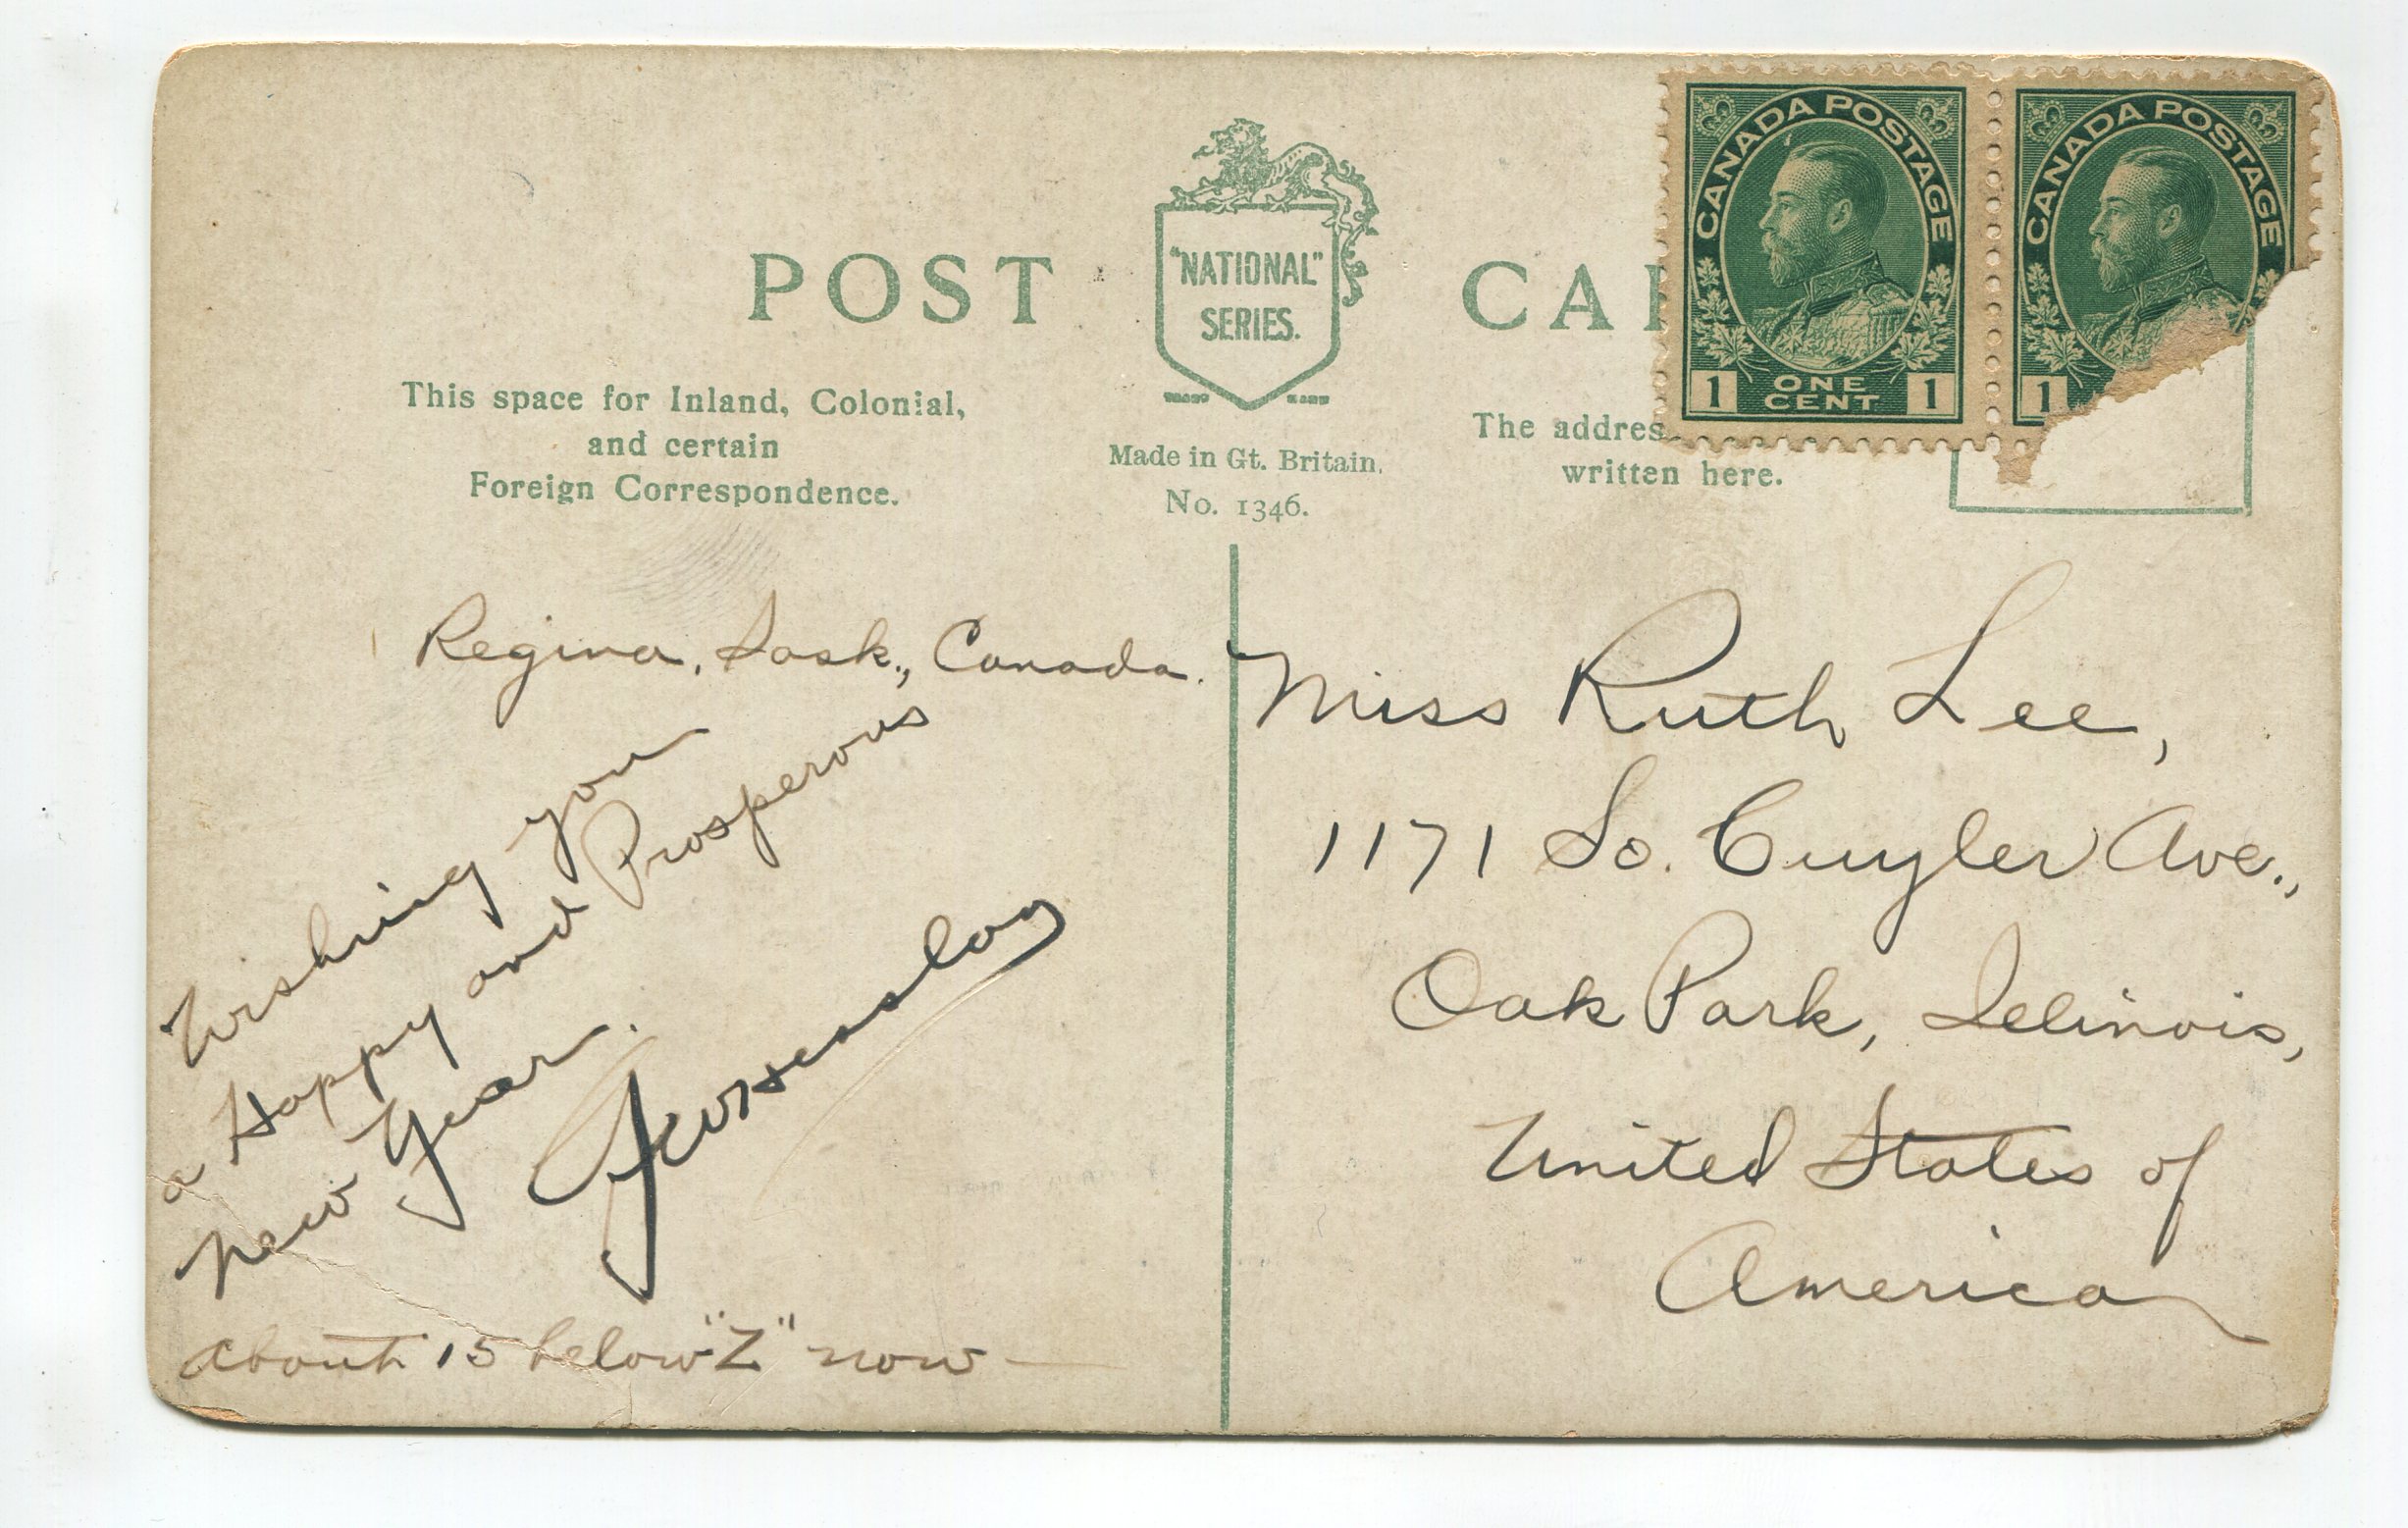 POST
"NATIONAL"
SERIES.
CAR
This space for Inland, Colonial,
and certain
Foreign Correspondence.
Made in Gt. Britain.
No. 1346.
The addres
written here.
CANADA POSTAGE
1 ONE CENT 1
CANADA POSTAGE
1
Regina, Sask., Canada.
Wishing you
a Happy and Prosperous
New Year.
About 15 below "Z" now
Miss Ruth Lee,
1171 So. Cuyler Ave.,
Oak Park, Illinois,
United States of
America